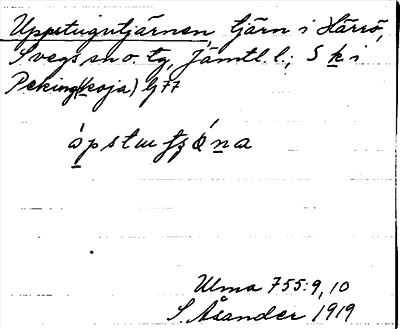 Uppstugutjärnen, tjärn i Härrö,
Svegs sn o. tg, Jämtl. l.; S k i
Peking(koja) G77
Ulma 755:9, 10
S. Åsander 1919